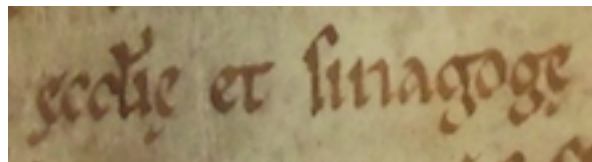 ęccl̄ię et ſinagogę